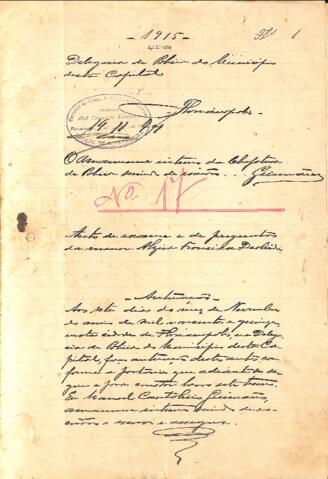 - 1915 -
Fl 1
Delegacia de Policia do Municipio
desta Capital
Florianopolis
19.11.
O Amanuense interino da Chefatura
de Policia servindo de escrivão . . . Guimarães
Nº 17
Auto de exame e de perguntas
da menor
- Autuação -
Aos sete dias do mez de Novembro
do anno de mil novecentos e quinze,
nesta cidade de Florianopolis, na Delega-
cia de Policia do Municipio desta Ca-
pital,
forme a portaria que adiante se se-
gue e para constar lavro este termo.
Eu Manoel Guimarães,
amanuense interino servindo de es-
crivão o escrevi e assigno.